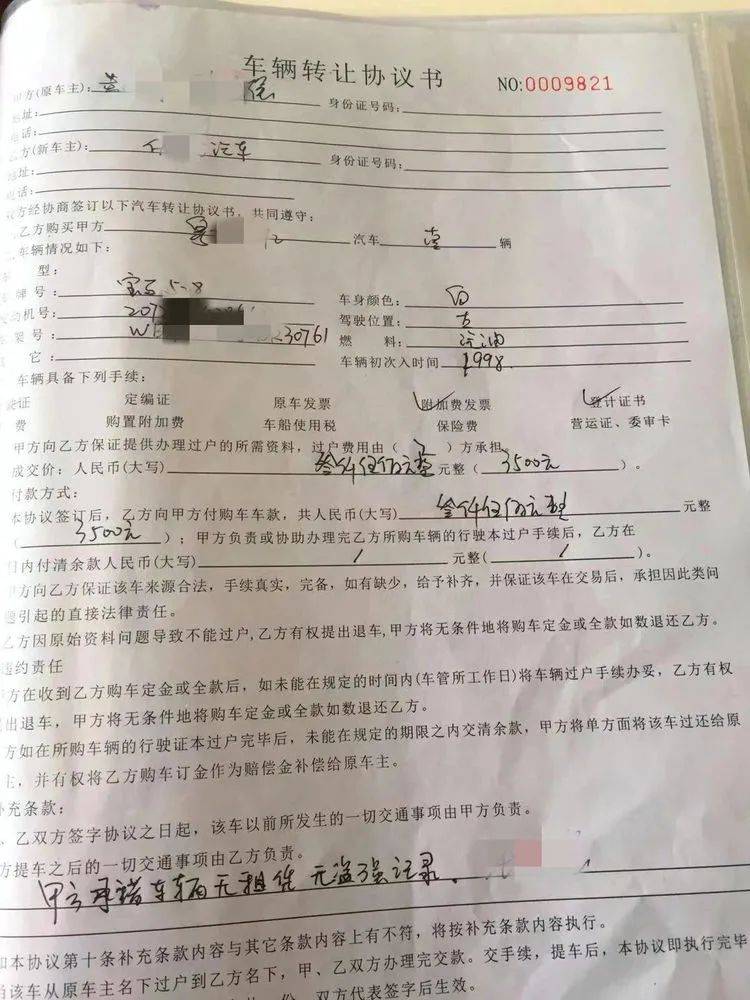 车辆转让协议书 NO:0009821
甲方(原车主): 身份证号码:
地址:
电话:
乙方(新车主): 汽车 身份证号码:
地址:
电话:
双方经协商签订以下汽车转让协议书，共同遵守:
乙方购买甲方 汽车 壹 辆
车辆情况如下:
型:
牌号: 宝马 车身颜色: 白
发动机号: 207 驾驶位置: 左
车架号: 230761 燃 料: 汽油
其 它: 车辆初次入时间 1998.
车辆具备下列手续:
定编证 原车发票 附加费发票 登计证书
费 购置附加费 车船使用税 保险费 营运证、委审卡
甲方向乙方保证提供办理过户的所需资料，过户费用由（ ）方承担。
成交价: 人民币(大写) 叁仟伍佰元整 元整（ 3500元 ）。
付款方式:
本协议签订后，乙方向甲方付购车车款，共人民币(大写) 叁仟伍佰元整 元整
（ 3500元 ）；甲方负责或协助办理完乙方所购车辆的行驶本过户手续后，乙方在
日内付清余款人民币(大写) / 元整( / )。
甲方向乙方保证该车来源合法，手续真实，完备，如有缺少，给予补齐，并保证该车在交易后，承担因此类问
题引起的直接法律责任。
乙方因原始资料问题导致不能过户,乙方有权提出退车,甲方将无条件地将购车定金或全款如数退还乙方。
违约责任
方在收到乙方购车定金或全款后，如未能在规定的时间内(车管所工作日)将车辆过户手续办妥，乙方有权
出退车，甲方将无条件地将购车定金或全款如数退还乙方。
方如在所购车辆的行驶证本过户完毕后，未能在规定的期限之内交清余款，甲方将单方面将该车过还给原
主，并有权将乙方购车订金作为赔偿金补偿给原车主。
补充条款:
、乙双方签字协议之日起，该车以前所发生的一切交通事项由甲方负责。
方提车之后的一切交通事项由乙方负责。
甲方承诺车辆无抵押 无盗强记录.
如本协议第十条补充条款内容与其它条款内容上有不符，将按补充条款内容执行。
当该车从原车主名下过户到乙方名下，甲、乙双方办理完交款。交手续，提车后，本协议即执行完毕
份，双方代表签字后生效。